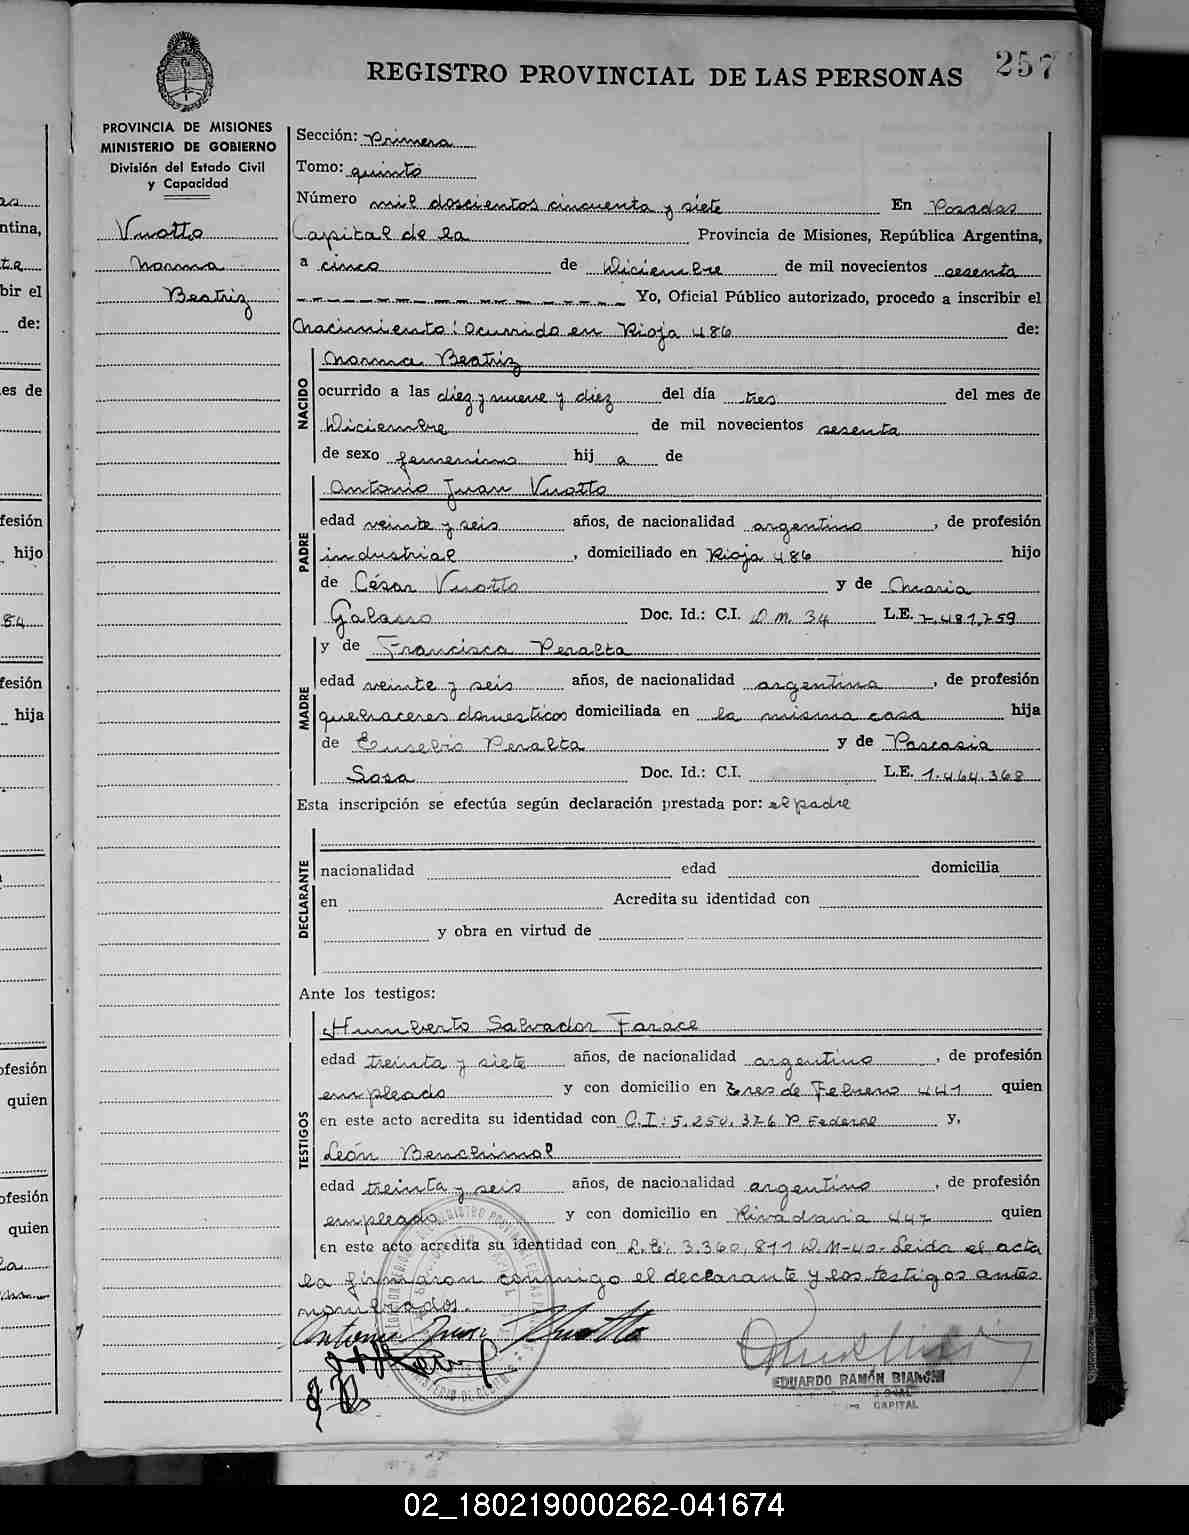 257
REGISTRO PROVINCIAL DE LAS PERSONAS
PROVINCIA DE MISIONES
MINISTERIO DE GOBIERNO
División del Estado Civil
y Capacidad
Vuotto
Norma
Beatriz
Sección: Primera
Tomo: quinto
Número mil doscientos cincuenta y siete En Posadas
Capital de la Provincia de Misiones, República Argentina,
a cinco de Diciembre de mil novecientos sesenta
Yo, Oficial Público autorizado, procedo a inscribir el
Nacimiento: Ocurrido en Rioja 486 de:
NACIDO
Norma Beatriz
ocurrido a las diez y nueve y diez del día tres del mes de
Diciembre de mil novecientos sesenta
de sexo femenino hij a de
PADRE
Antonio Juan Vuotto
edad veinte y seis años, de nacionalidad argentino, de profesión
industrial, domiciliado en Rioja 486 hijo
de César Vuotto y de Maria
Galasso Doc. Id.: C.I. D.M. 34 L.E. 7.481.759
MADRE
y de Francisca Peralta
edad veinte y seis años, de nacionalidad argentina, de profesión
quehaceres domesticos domiciliada en la misma casa hija
de Eusebio Peralta y de Pascasia
Sosa Doc. Id.: C.I. L.E. 1.464.368
Esta inscripción se efectúa según declaración prestada por: el padre
DECLARANTE
nacionalidad edad domicilia
en Acredita su identidad con
y obra en virtud de
Ante los testigos:
TESTIGOS
Humberto Salvador Farace
edad treinta y siete años, de nacionalidad argentino, de profesión
empleado y con domicilio en Tres de Febrero 441 quien
en este acto acredita su identidad con C.I: 5.250.376 P Federal y,
León Benchimol
edad treinta y seis años, de nacionalidad argentino, de profesión
empleado y con domicilio en Rivadavia 447 quien
en este acto acredita su identidad con L.E. 3.360.811 D.M-40- Leida el acta
la firmaron conmigo el declarante y los testigos antes
nombrados.
Antonio Juan Vuotto
EDUARDO RAMÓN BIANCHI
CAPITAL
02_180219000262-041674